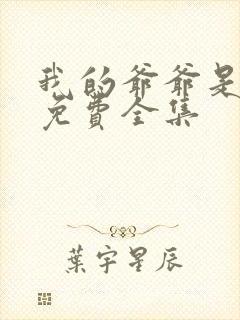 我的爷爷是
免費全集
葉宇星辰